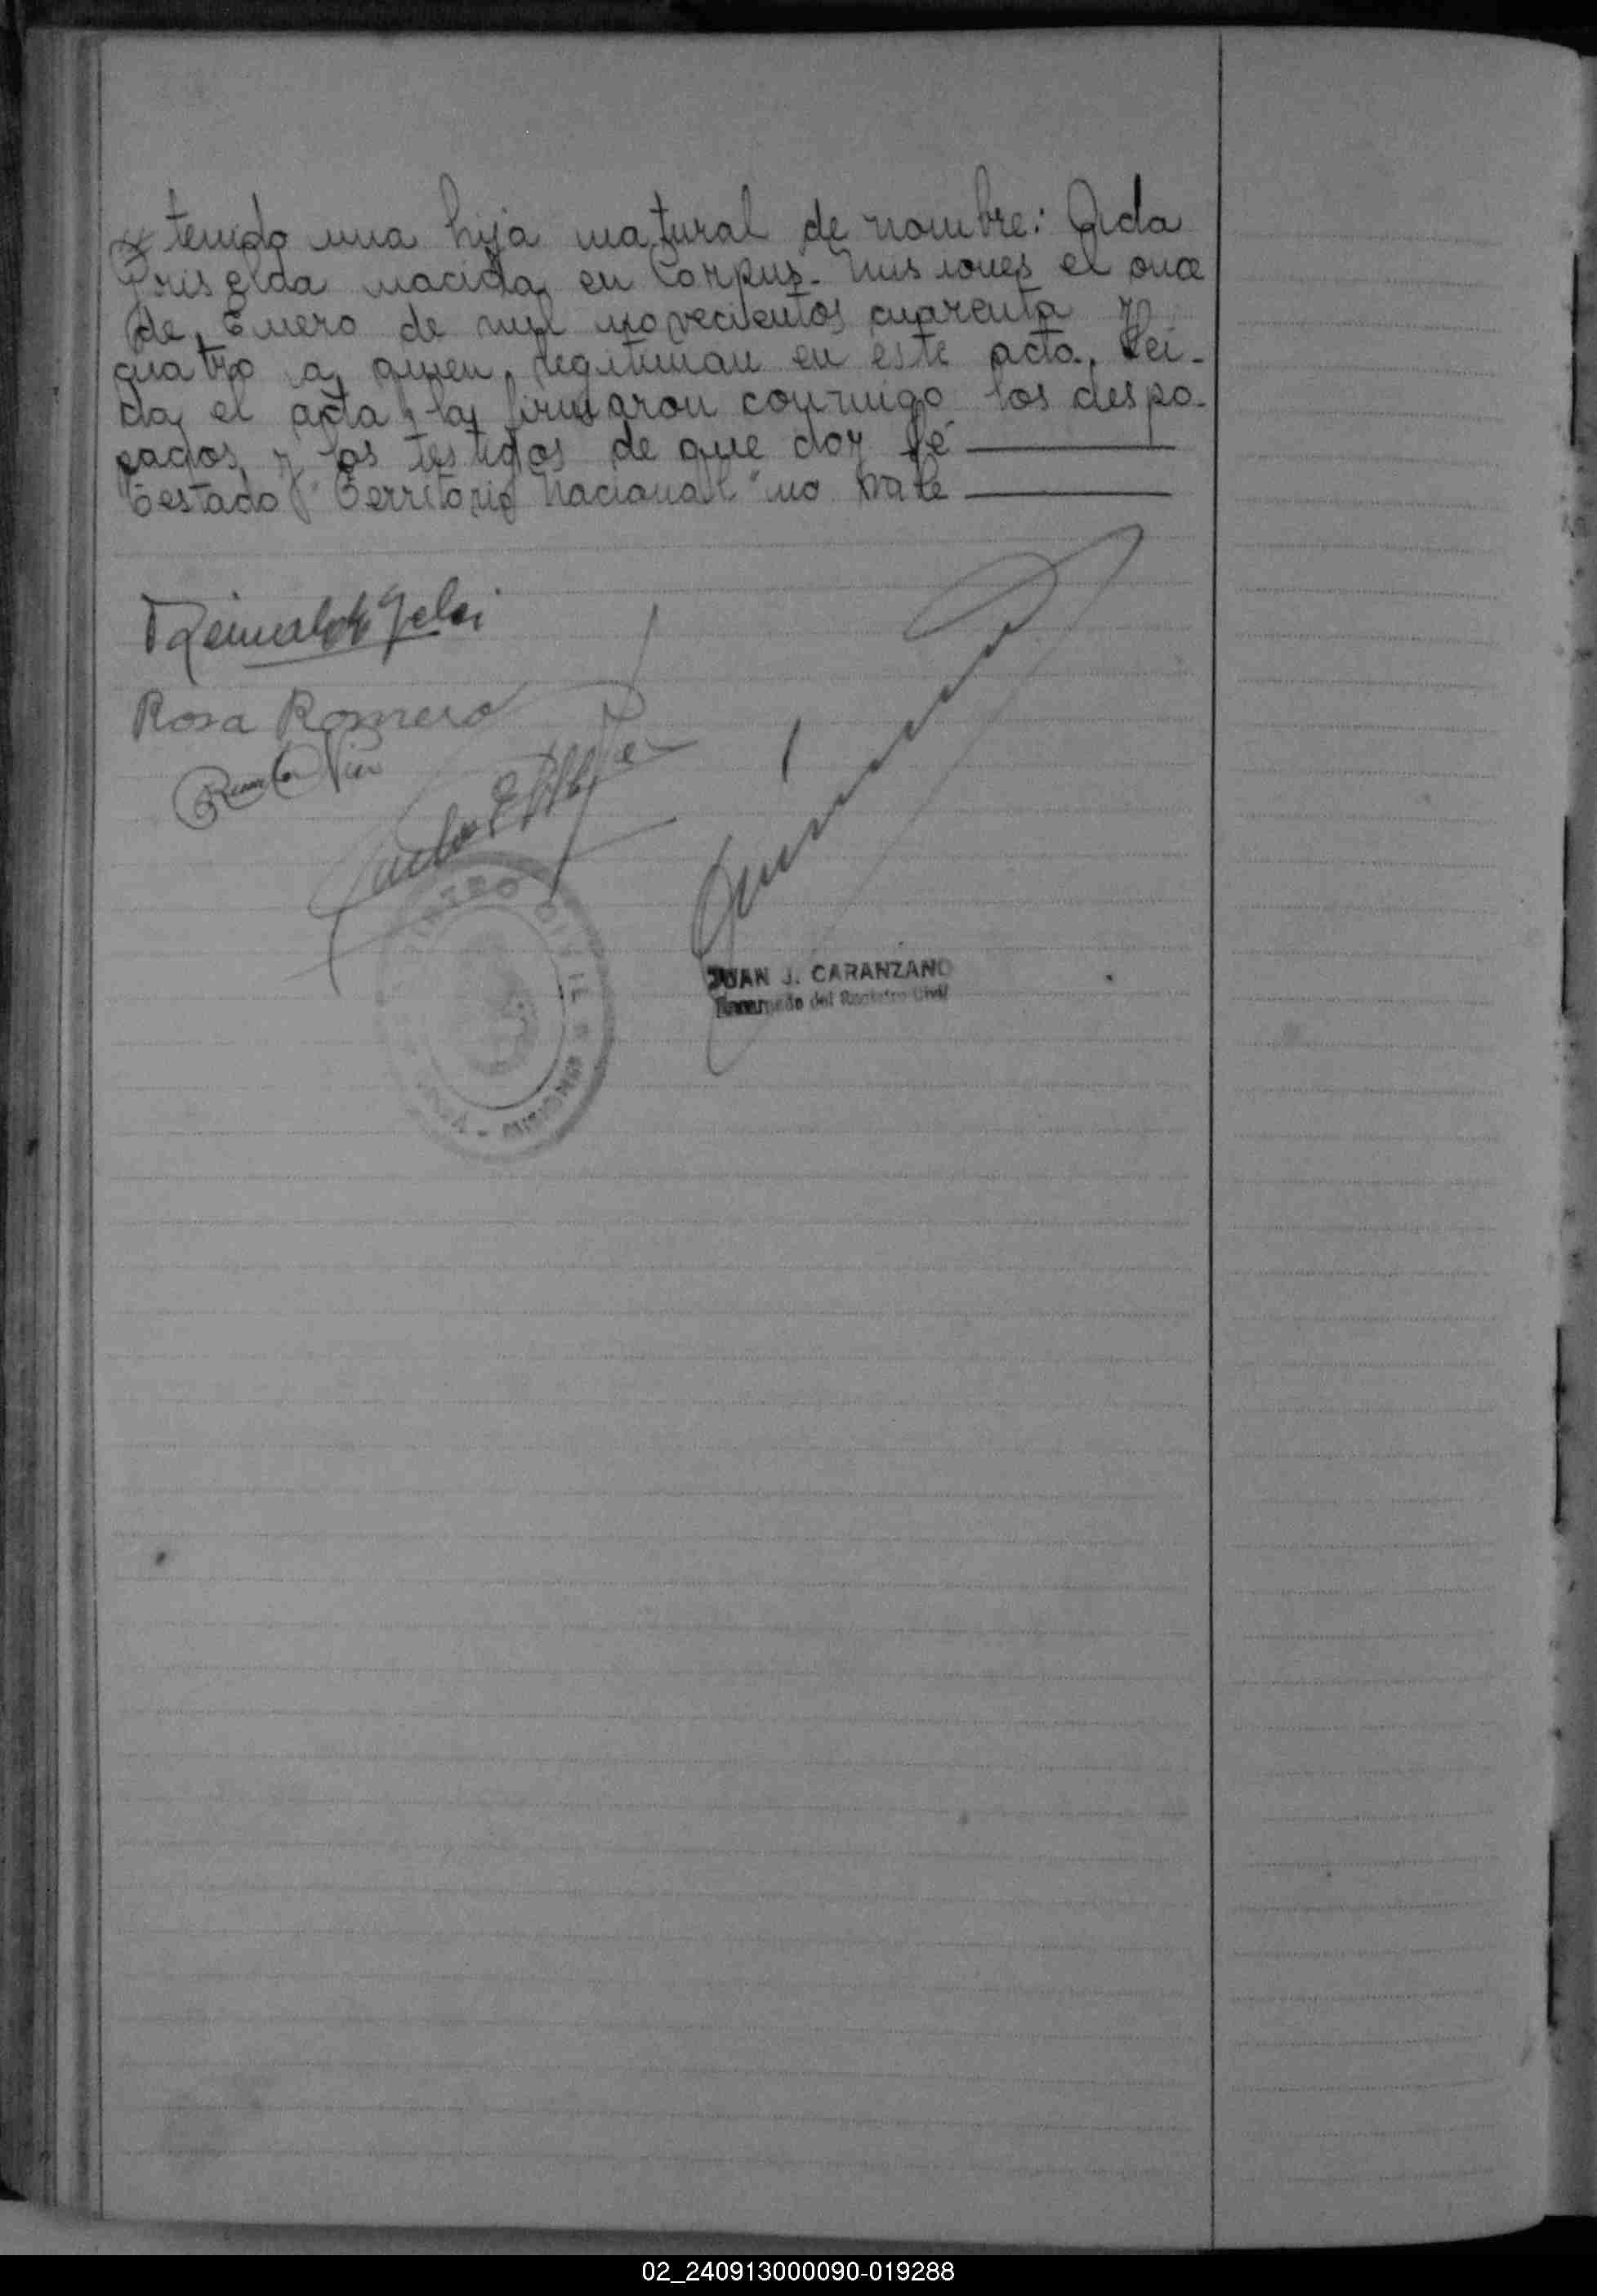 tenido una hija natural de nombre: Aida
Griselda nacida en Corpus- Misiones el once
de Enero de mil novecientos cuarenta y
cuatro a quien legitiman en este acta. Lei-
da el acta, la firmaron conmigo los despo-
sados y los testigos de que doy fé
Testado "Territorio Nacional" no vale
Rosa Romero
REGISTRO CIVIL
MISIONES
JUAN J. CARANZANO
Encargado del Registro Civil
02_240913000090-019288